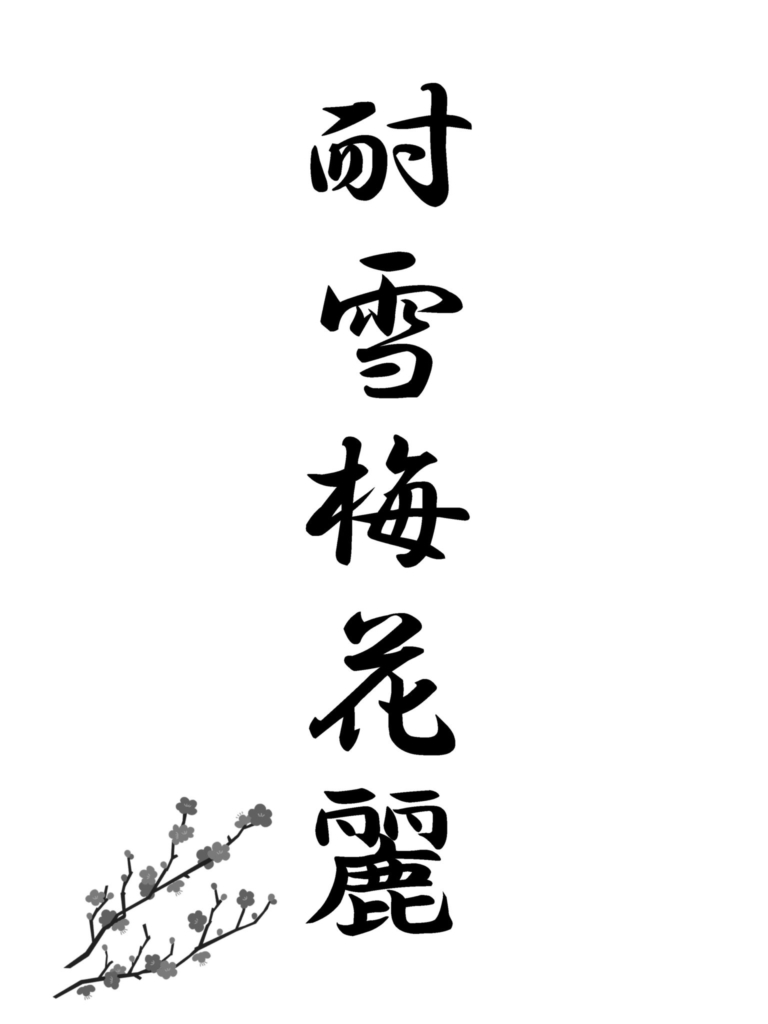 耐雪梅花麗